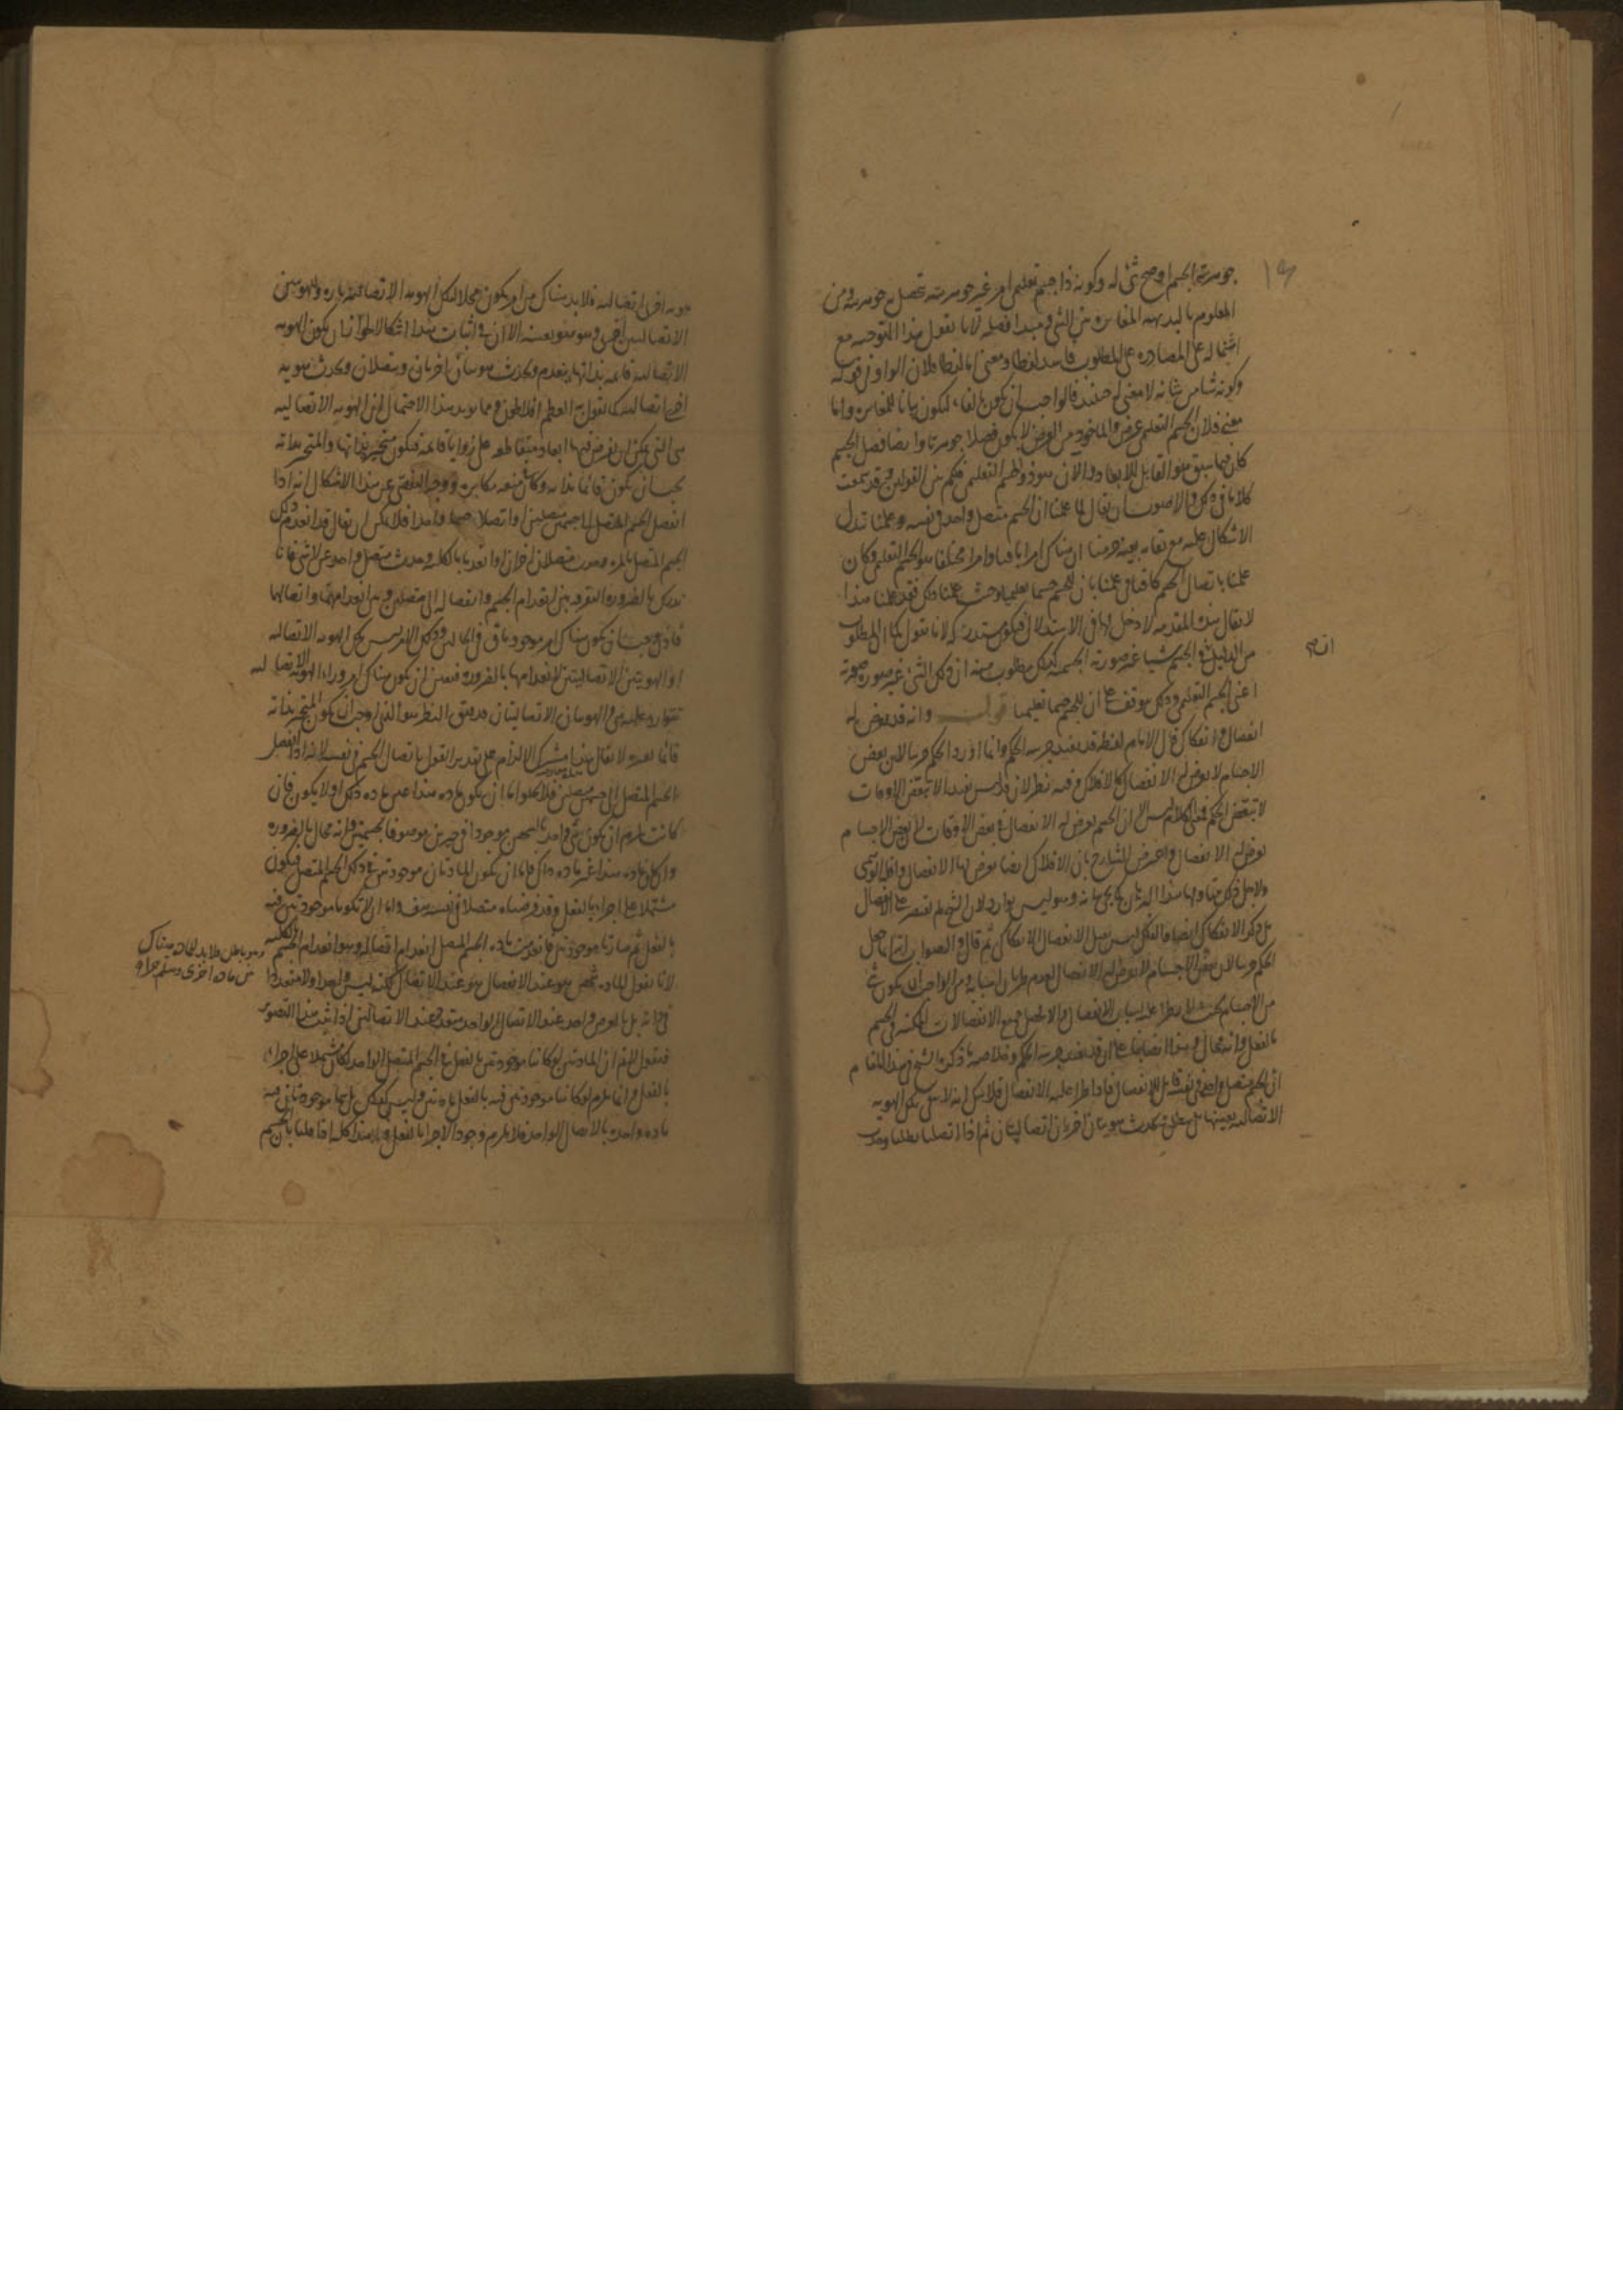 جوهرية الجسم اوضح شئ له وكونه ذا جسم تعليمى امر غير جوهريته تحصل به جوهريته ومن
المعلوم بالبديهة المغايرة بين الشئ ومبدا فصله لانا نقول هذا التوجيه مع
اشتماله على المصادرة على المطلوب فاسد لفظا ومعنى اما لفظا فلان الواو فى قوله
وكونه شامن شانه لا معنى له حينئذ فالواجب ان يكون بالفاء ليكون بيانا للمغايرة واما
معنى فلان الجسم التعليمى عرض والماخوذ من العرض لا يكون فصلا جوهريا وايضا فصل الجسم
كان فيما سبق هو القابل للابعاد والان هو ذو الجسم التعليمى فكم بين القولين وقد سمعت
كلاما فى ذلك والاصوب ان يقال لما علمنا ان الجسم متصل واحد فى نفسه وعلمنا تبدل
الاشكال عليه مع بقائه بعينه جزمنا ان هناك امرا باقيا وامرا مختلفا هو الجسم التعليمى وكان
علمنا باتصال الجسم كافيا فى علمنا بان للجسم جسما تعليميا وحيث علمنا ذلك فقد علمنا هذا
لا يقال هذه المقدمة لا دخل لها فى الاستدلال فيكون مستدركة لانا نقول كما ان المطلوب
من الدليل ان فى الجسم شيئا غير صورته الجسمية كذلك مطلوب منه ان ذلك الشئ غير صورة صورته
انه
اعنى الجسم التعليمى وذلك موقوف على ان للجسم جسما تعليميا قوله وانه قد يعرض له
انفصال وانفكاك قال الامام لفظة قد تفيد جزئية الحكم وانما اورد الحكم جزئيا لان بعض
الاجسام لا يعرض له الانفصال كالافلاك وفيه نظر لان قد ليس يفيد الا تبعض الاوقات
لا تبعض الحكم فمعنى الكلام ليس الا ان الجسم يعرض له الانفصال فى بعض الاوقات لا ان بعض الاجسام
يعرض له الانفصال واعترض الشارح بان الافلاك ايضا يعرض لها الانفصال
بل ذكر الانفكاك ايضا والفلك ليس يقبل الانفصال الانفكاكى ثم قال والصواب انه انما جعل
الحكم جزئيا لان بعض الاجسام لا يعرض له الانفصال لعدم طريان اسبابه ومن الواجب ان يكون فى
بالفعل وانه محال وهذا ايضا بناء على ان قد تفيد جزئية الحكم وخلاصة ما ذكره الشيخ فى هذا المقام
ان الجسم متصل واحد فى نفسه قابل للانفصال فاذا طرا عليه الانفصال فلا شك انه لا يبقى تلك الهوية
الاتصالية بعينها بل يبطل ويحدث هويتان اخريان اتصاليتان ثم اذا اتصلتا بطلتا وحدث
هوية اخرى اتصالية فلا بد هناك من امر يكون محلا لتلك الهوية الاتصالية تارة وللهويتين
الاتصاليتين اخرى وهو هو بعينه الا ان فى اثبات هذا اشكالا لجواز ان يكون الهوية
الاتصالية قائمة بذاتها ينعدم ويحدث هويتان اخريان وينفصلان ويحدث هوية
اخرى اتصالية كما يقول به العظيم افلاطون ومما يؤيد هذا الاحتمال ان الهوية الاتصالية
هى التى يمكن ان يفرض فيها ابعاد متقاطعة على زوايا قائمة فيكون متحيزة بذاتها والمتحيز بذاته
يجب ان يكون قائما بذاته وكان منعه مكابرة ووجه التفصى عن هذا الاشكال انه اذا
انفصل الجسم المتصل الى جسمين منفصلين واتصلا صارا واحدا فلا يمكن ان يقال قد انعدم ذلك
الجسم المتصل بالمرة وحدث متصلان اخران او انعدما بالكلية وحدث متصل واحد عن لا شئ فانا
ندرك بالضرورة التفرقة بين انعدام الجسم وانفصاله الى متصلين وبين انعدامهما واتصالهما
فاذن يجب ان يكون هناك امر موجود باق فى الحالتين وذلك الامر ليس تلك الهوية الاتصالية
او الهويتين الاتصاليتين لانعدامها بالضرورة فتعين ان يكون هناك امر وراء الهوية الاتصالية
تتوارد عليه هى والهويتان الاتصاليتان فدقق النظر هو الذى اوجب ان يكون المتحيز بذاته
قائما بغيره لا يقال هذا مشترك الالزام على تقدير القول باتصال الجسم فى نفسه لانه اذا انفصل
الجسم المتصل الى جسمين متصلين فلا يخلو اما ان يكون مادة هذا عين مادة ذلك او لا يكون فان
كانت يلزم ان يكون شئ واحد بالشخص موجودا فى حيزين موصوفا بجسميتين وانه محال بالضرورة
وان كان مادة هذا غير مادة ذاك فاما ان يكون المادتان موجودتين فى ذلك الجسم المتصل فيكون
مشتملا على اجزاء بالفعل وقد فرضناه متصلا فى نفسه هف واما ان لا تكونا موجودتين فيه
بالفعل ثم صارتا موجودتين فانعدمت مادة الجسم المتصل انعدام اتصاله وهو انعدام الجسم بالكلية
وهو باطل ولا بد لحادث هناك
من مادة اخرى ويتم جرا و
لانا نقول المادة شخص هو عند الانفصال هو عند الاتصال لكنه ليس واحدا ولا متعددا
فى ذاته بل بالعرض واحد عند الاتصال الواحد متعدد عند الاتصالين اذا ثبت هذا التصور
فنقول لا نم ان المادتين لو كانتا موجودتين بالفعل فى الجسم المتصل الواحد لكان مشتملا على اجزاء
بالفعل وانما يلزم لو كانتا موجودتين فيه بالفعل مادتين وليس كذلك بل هما موجودتان فيه
مادة واحدة بالاتصال الواحد فلا يلزم وجود الاجزاء بالفعل هذا كله اذا قلنا بان الجسم